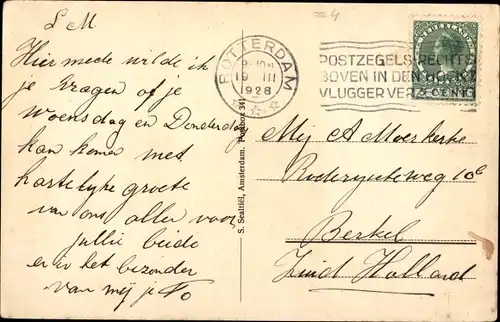 L M
Hier mede wilde ik
je vragen of je
Woensdag en Donderdag
kan komen met
hartelijke groete
van ons allen voor
jullie beide
en in het bizonder
van mij je
S. Sealtiël, Amsterdam. Postbox 34
=4
ROTTERDAM
19 III
1928
POSTZEGELS RECHTS
BOVEN IN DEN HOEK?
VLUGGER VERZ
5 CENT
Mej A Moerkerke
Rodenrijscheweg 10
Berkel
Zuid Holland